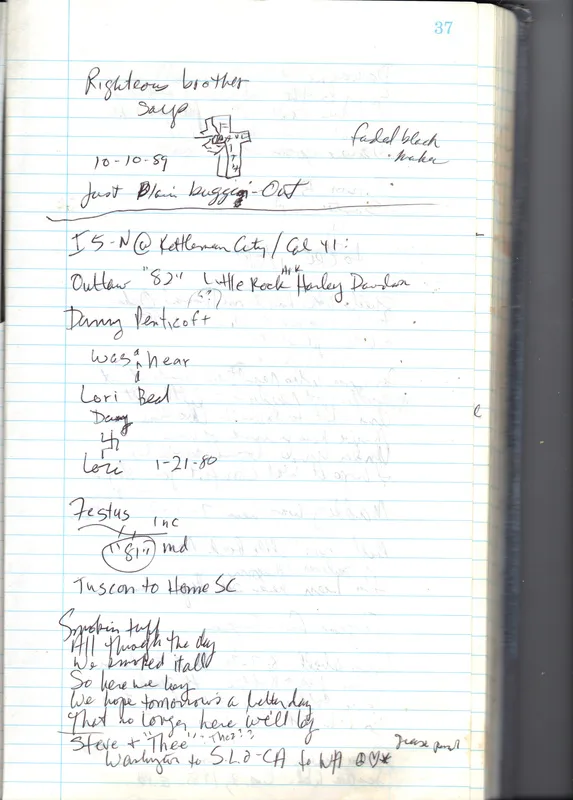 37
Righteous brother
says
faded black
maker
10-10-89
Just Plain buggin-Out
I5-N @ Kettleman City / Cal 41:
Outlaw "82" Little Rock Ark Harley Davidson
(8?)
Danny Penticoft
was and hear
Lori Bed
Danny
Lori 1-21-80
Festus
Inc
"81" md
Tuscon to Home SC
Smokin tuff
All through the day
We smoked it all
So here we lay
We hope tomorrow's a better day
That no longer here we'll lay
Steve + "Thee" - Theo??
Washington to S.L.O-CA to WA
Grease pencil